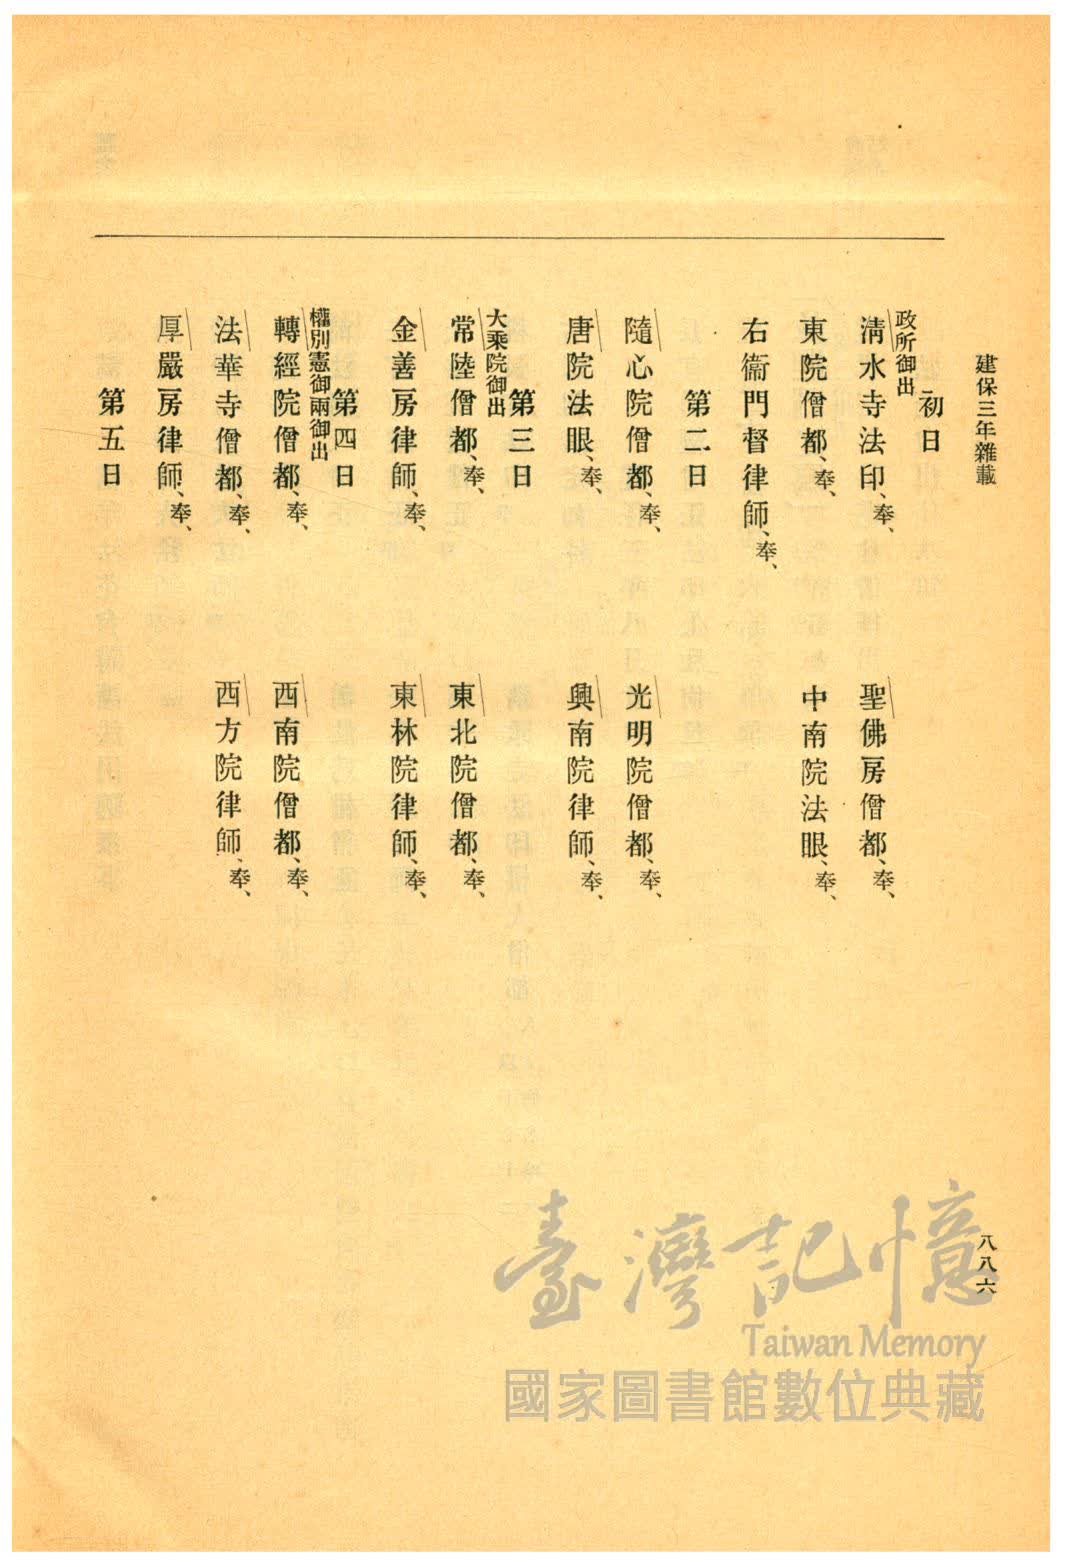 建保三年雜載
八八六
初日
政所御出
淸水寺法印、奉、
聖佛房僧都、奉、
東院僧都、奉、
中南院法眼、奉、
右衞門督律師、奉、
第二日
隨心院僧都、奉、
光明院僧都、奉、
唐院法眼、奉、
興南院律師、奉、
第三日
大乘院御出
常陸僧都、奉、
東北院僧都、奉、
金善房律師、奉、
東林院律師、奉、
第四日
權別憲御兩御出
轉經院僧都、奉、
西南院僧都、奉、
法華寺僧都、奉、
西方院律師、奉、
厚嚴房律師、奉、
第五日
臺灣記憶
Taiwan Memory
國家圖書館數位典藏